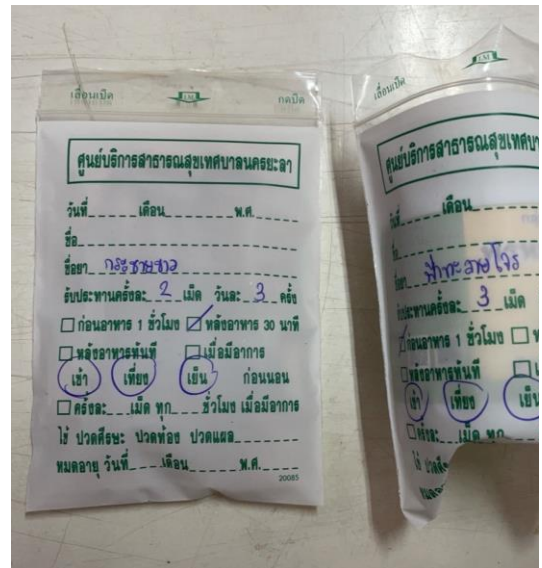 เลื่อนเปิด J.M. กดปิด
ศูนย์บริการสาธารณสุขเทศบาลนครยะลา
วันที่ เดือน พ.ศ.
ชื่อ
ชื่อยา กระชายขาว
รับประทานครั้งละ 2 เม็ด วันละ 3 ครั้ง
ก่อนอาหาร 1 ชั่วโมง หลังอาหาร 30 นาที
หลังอาหารทันที เมื่อมีอาการ
เช้า เที่ยง เย็น ก่อนนอน
ครั้งละ เม็ด ทุก ชั่วโมง เมื่อมีอาการ
ไข้ ปวดศีรษะ ปวดท้อง ปวดแผล
หมดอายุ วันที่ เดือน พ.ศ.
20085
เลื่อนเปิด J.M.
ศูนย์บริการสาธารณสุขเทศบาลนคร
วันที่ เดือน
ชื่อ
ชื่อยา ฟ้าทะลายโจร
รับประทานครั้งละ 3 เม็ด
ก่อนอาหาร 1 ชั่วโมง
หลังอาหารทันที
เช้า เที่ยง เย็น
ครั้งละ เม็ด ทุก
ไข้